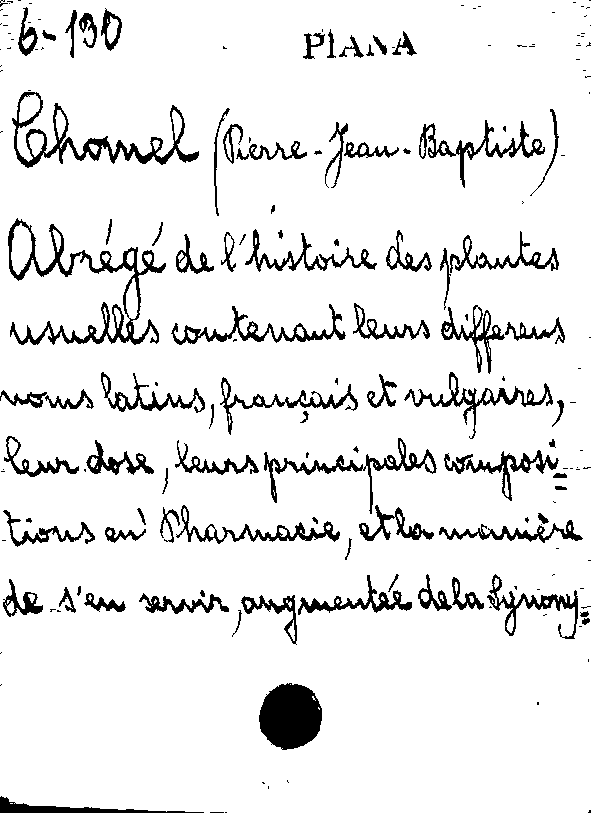 6-190
PIANA
Chomel (Pierre-Jean-Baptiste)
Abrégé de l'histoire des plantes
usuelles contenant leurs differens
noms latins, français et vulgaires,
leur dose, leurs principales composi=
tions en Pharmacie, et la manière
de s'en servir, augmentée de la Synony=